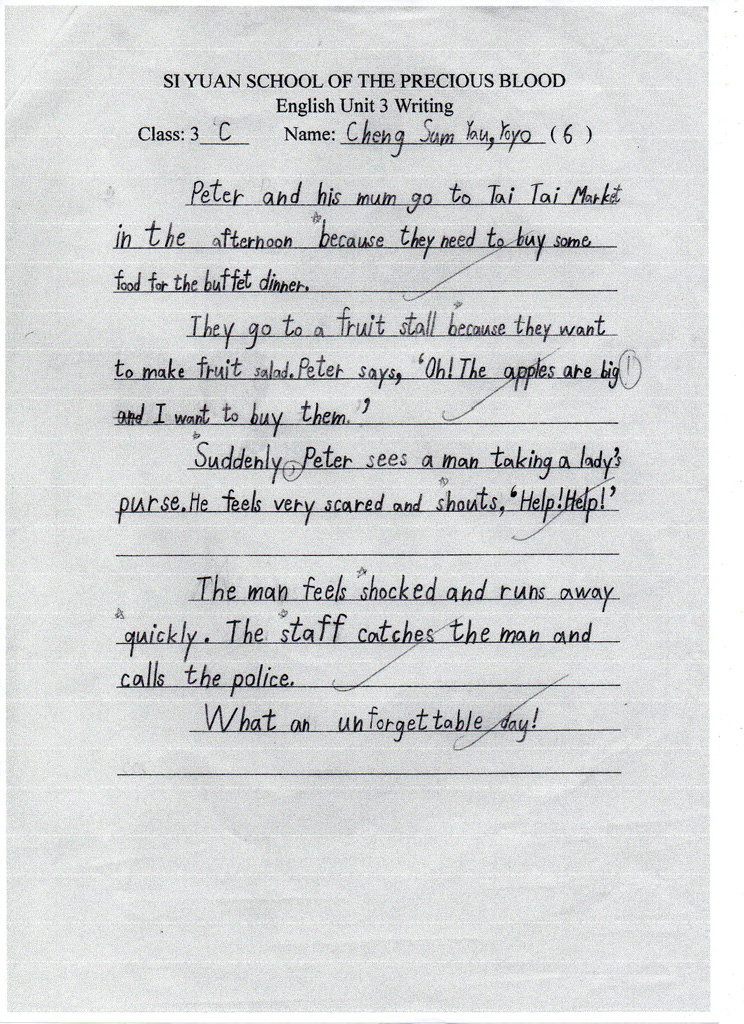 SI YUAN SCHOOL OF THE PRECIOUS BLOOD
English Unit 3 Writing
Class: 3 C Name: Cheng Sum Yau, Yoyo ( 6 )
Peter and his mum go to Tai Tai Market
in the afternoon because they need to buy some
food for the buffet dinner.
They go to a fruit stall because they want
to make fruit salad. Peter says, 'Oh! The apples are big!
and I want to buy them.'
Suddenly, Peter sees a man taking a lady's
purse. He feels very scared and shouts, 'Help! Help!'
The man feels shocked and runs away
quickly. The staff catches the man and
calls the police.
What an unforgettable day!